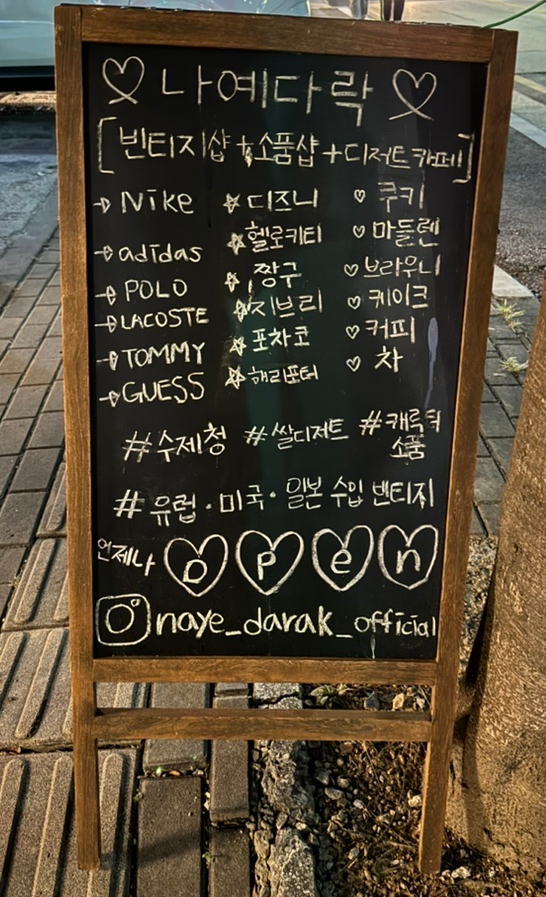 나예다락
[빈티지샵+소품샵+디저트카페]
→ Nike ☆ 디즈니 ♡ 쿠키
→ adidas ☆ 헬로키티 ♡ 마들렌
→ POLO ☆ 짱구 ♡ 브라우니
→ LACOSTE ☆ 지브리 ♡ 케이크
→ TOMMY ☆ 포차코 ♡ 커피
→ GUESS ☆ 해리포터 ♡ 차
#수제청 #쌀디저트 #캐릭터
소품
#유럽·미국·일본 수입 빈티지
언제나 open
naye_darak_official